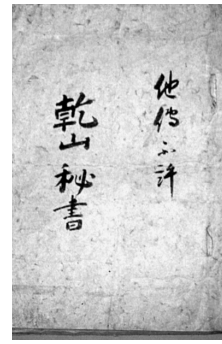 他傳不許
乾山秘書